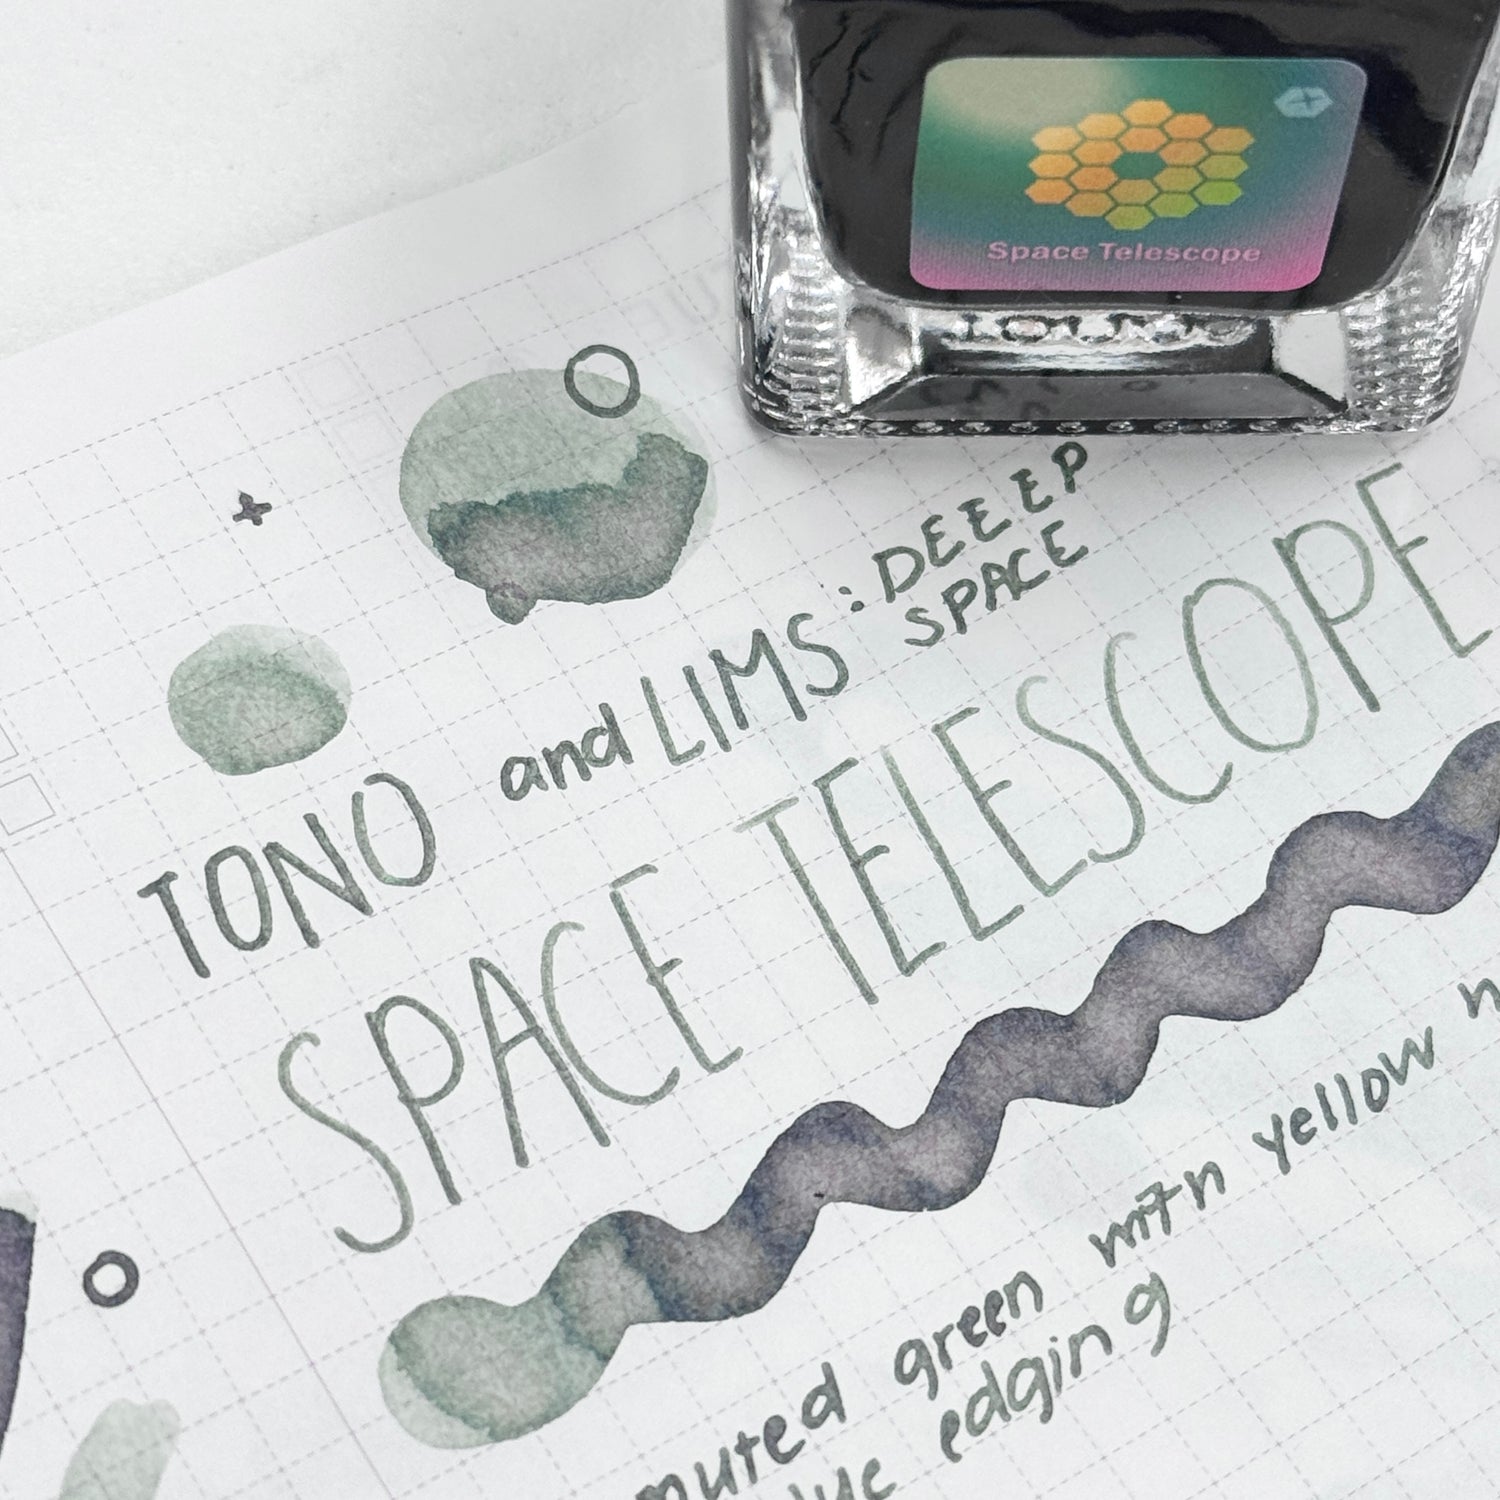 Space Telescope
TONO and LIMS : DEEP
SPACE
SPACE TELESCOPE
muted green with yellow
edging